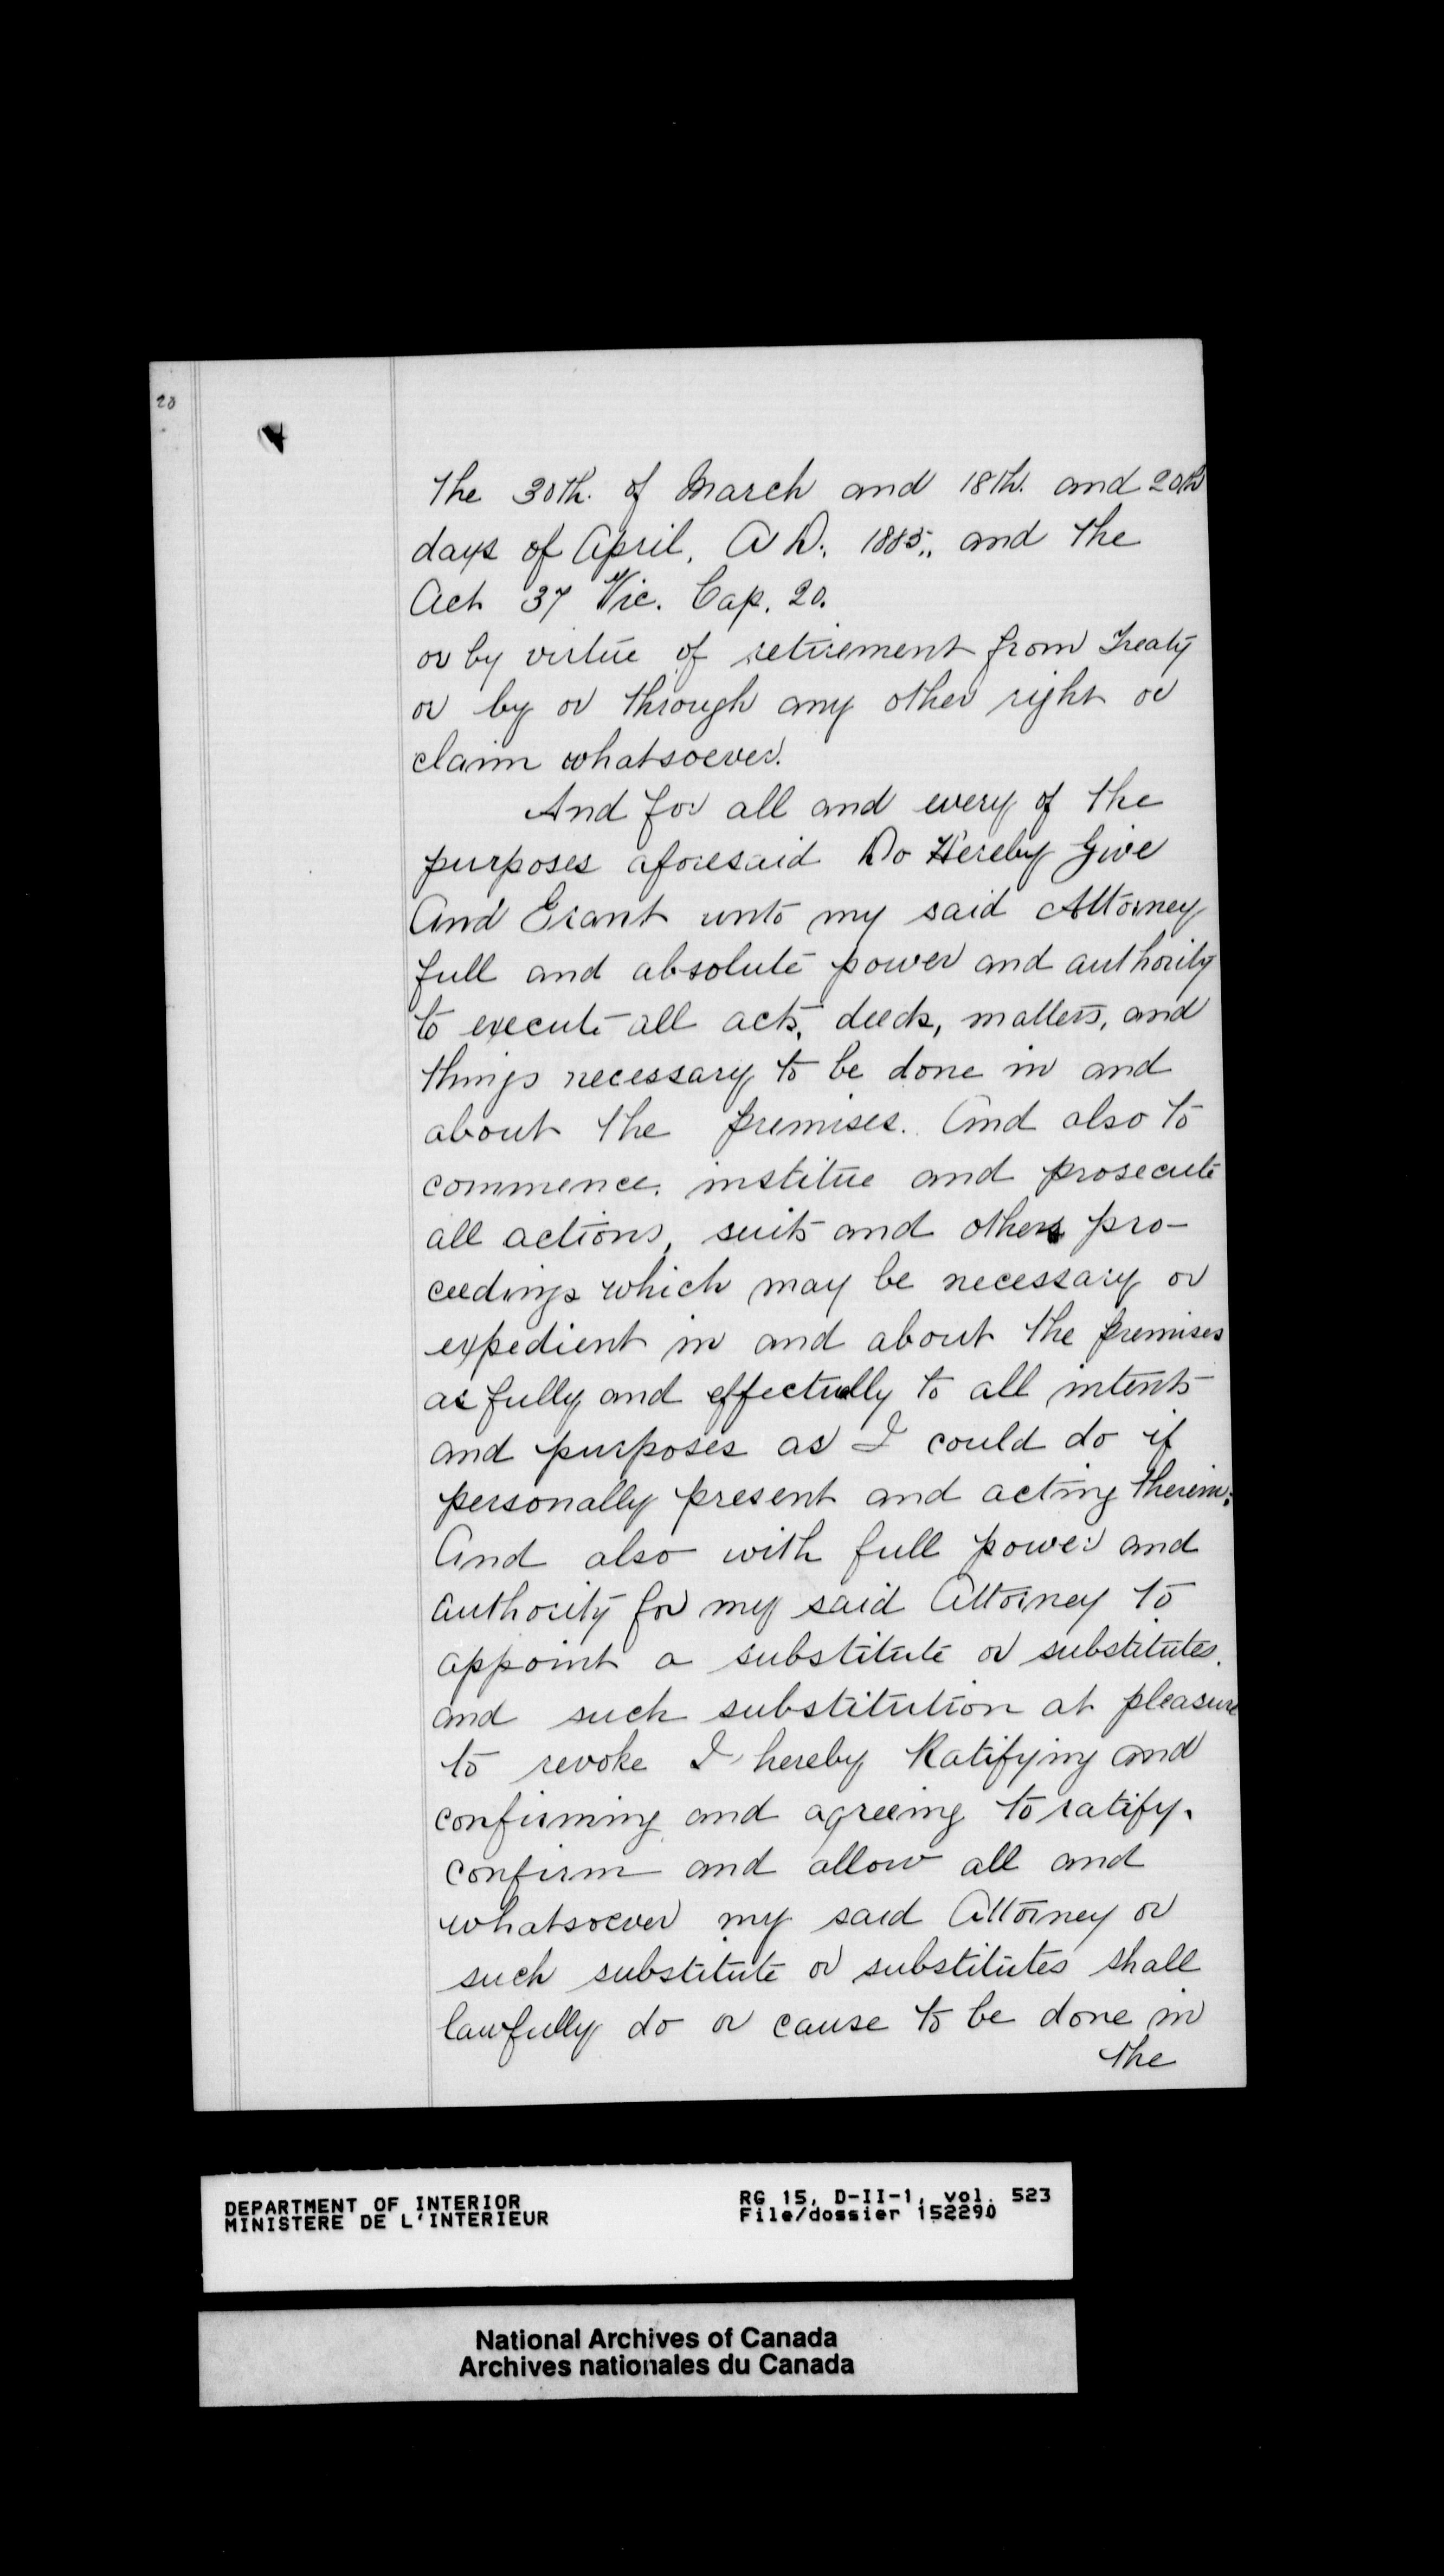 20
the 30th. of March and 18th. and 20th
days of April, A D. 1885., and the
Act 37 Vic. Cap. 20.
or by virtue of retirement from Treaty
or by or through any other right or
claim whatsoever.
And for all and every of the
purposes aforesaid Do Hereby Give
And Grant unto my said Attorney
full and absolute power and authority
to execute all acts, deeds, matters, and
things necessary to be done in and
about the premises. And also to
commence, institue and prosecute
all actions, suits and others pro-
ceedings which may be necessary or
expedient in and about the premises
as fully and effectually to all intents
and purposes as I could do if
personally present and acting therein;
And also with full power and
authority for my said Attorney to
appoint a substitute or substitutes,
and such substitution at pleasure
to revoke I hereby Ratifying and
confirming and agreeing to ratify,
confirm and allow all and
whatsoever my said Attorney or
such substitute or substitutes shall
lawfully do or cause to be done in
the
DEPARTMENT OF INTERIOR
MINISTERE DE L'INTERIEUR
RG 15, D-II-1, vol. 523
File/dossier 152290
National Archives of Canada
Archives nationales du Canada